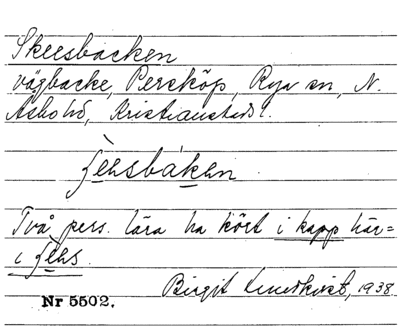 Skeesbacken
vägbacke, Perskóp, Rya sn, N.
Åsbo hd, Kristianstads l.
ʃèesbákən
Två pers. lära ha kört i kapp här =
i ʃees.
Birgit Lindkvist, 1938.
Nr 5502.